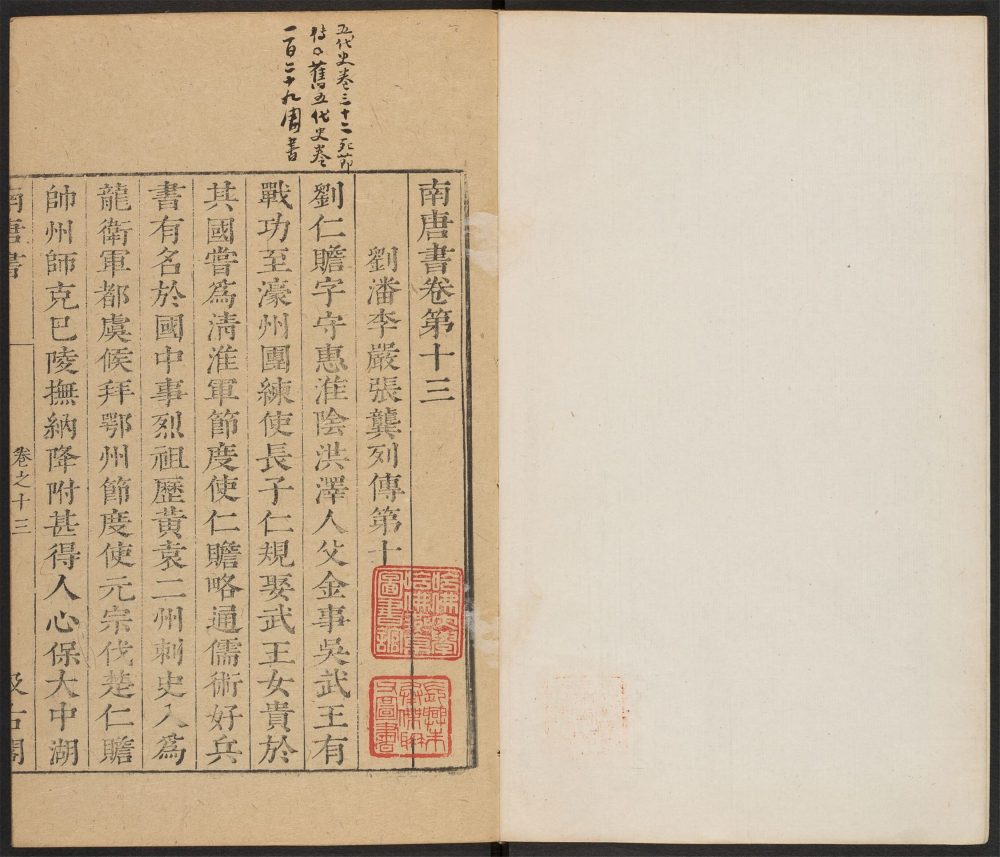 五代史卷三十二死節
傳又舊五代史卷
一百二十九周書
南唐書卷第十三
劉潘李嚴張龔列傳第十
劉仁贍字守惠淮陰洪澤人父金事吳武王有
戰功至濠州團練使長子仁規娶武王女貴於
其國嘗爲清淮軍節度使仁贍略通儒術好兵
書有名於國中事烈祖歷黃袁二州刺史入爲
龍衛軍都虞候拜鄂州節度使元宗伐楚仁贍
帥州師克巴陵撫納降附甚得人心保大中湖
南唐書
卷之十三
汲古閣
哈佛大學哈佛燕京圖書館